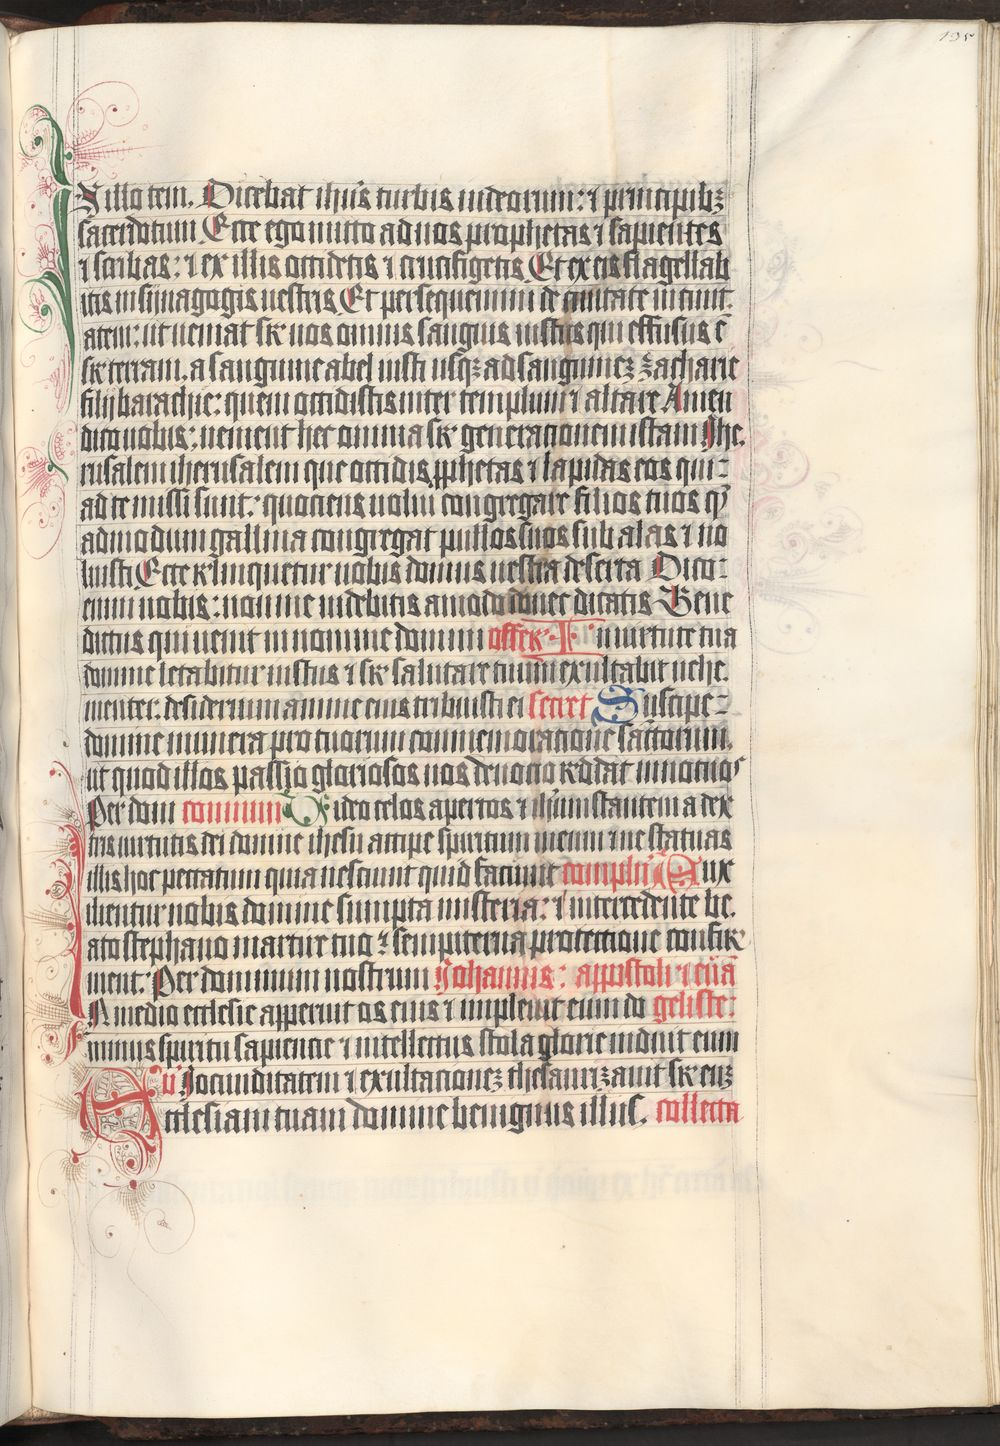 195
In illo tem. Dicebat ihūs turbis iudeorum: ⁊ principibꝫ
sacerdotum Ecce ego mitto ad uos prophetas ⁊ sapientes
⁊ scribas: ⁊ ex illis occidetis ⁊ crucifigetis Et ex eis flagellab
itis in sijnagogis uestris Et persequemini de ciuitate in ciuit
atem: ut ueniat sr̄ uos omnis sanguis iustus qui effusus ē
sr̄ terram. a sanguine abel iusti usqꝫ ad sanguineꝫ zacharie
filij barachie: quem occidistis inter templum ⁊ altare Amen
dico uobis: uenient hec omnia sr̄ generationem istam Jhe
rusalem iherusalem que occidis ꝓphetas ⁊ lapidas eos qui
ad te missi sunt: quociens uolui congregare filios tuos qͫ
admodum gallina congregat pullos suos sub alas ⁊ no
luisti Ecce relinquetur uobis domus uestra deserta Dico
enim uobis: non me uidebitis amodo donec dicatis Bene
dictus qui uenit in nomine domini offer In uirtute tua
domine letabitur iustus ⁊ sr̄ salutare tuum exultabit uehe
menter: desiderium anime eius tribuisti ei secret Suscipe
domine munera pro tuorum commemoratione sanctorum.
ut quod illos passio gloriosos nos deuotio reddat innocuos
Per dom̄ commun Uideo celos apertos ⁊ ihūm stantem a dex
tris uirtutis dei domine ihesu accipe spiritum meum ⁊ ne statuas
illis hoc peccatum quia nesciunt quid faciunt complen̄ Aux
ilientur nobis domine sumpta misteria: ⁊ intercedente be
ato stephano martire tuo ⁊ sempiterna protectione confir
ment: Per dominum nostrum Johannis: appostoli ⁊ euā
In medio ecclesie apperuit os eius ⁊ impleuit eum do geliste:
minus spiritu sapiencie ⁊ intellectus stola glorie induit eum
ū Jocunditatem ⁊ exultacioneꝫ thesaurizauit sr̄ euꝫ
Ecclesiam tuam domine benignus illus. collecta